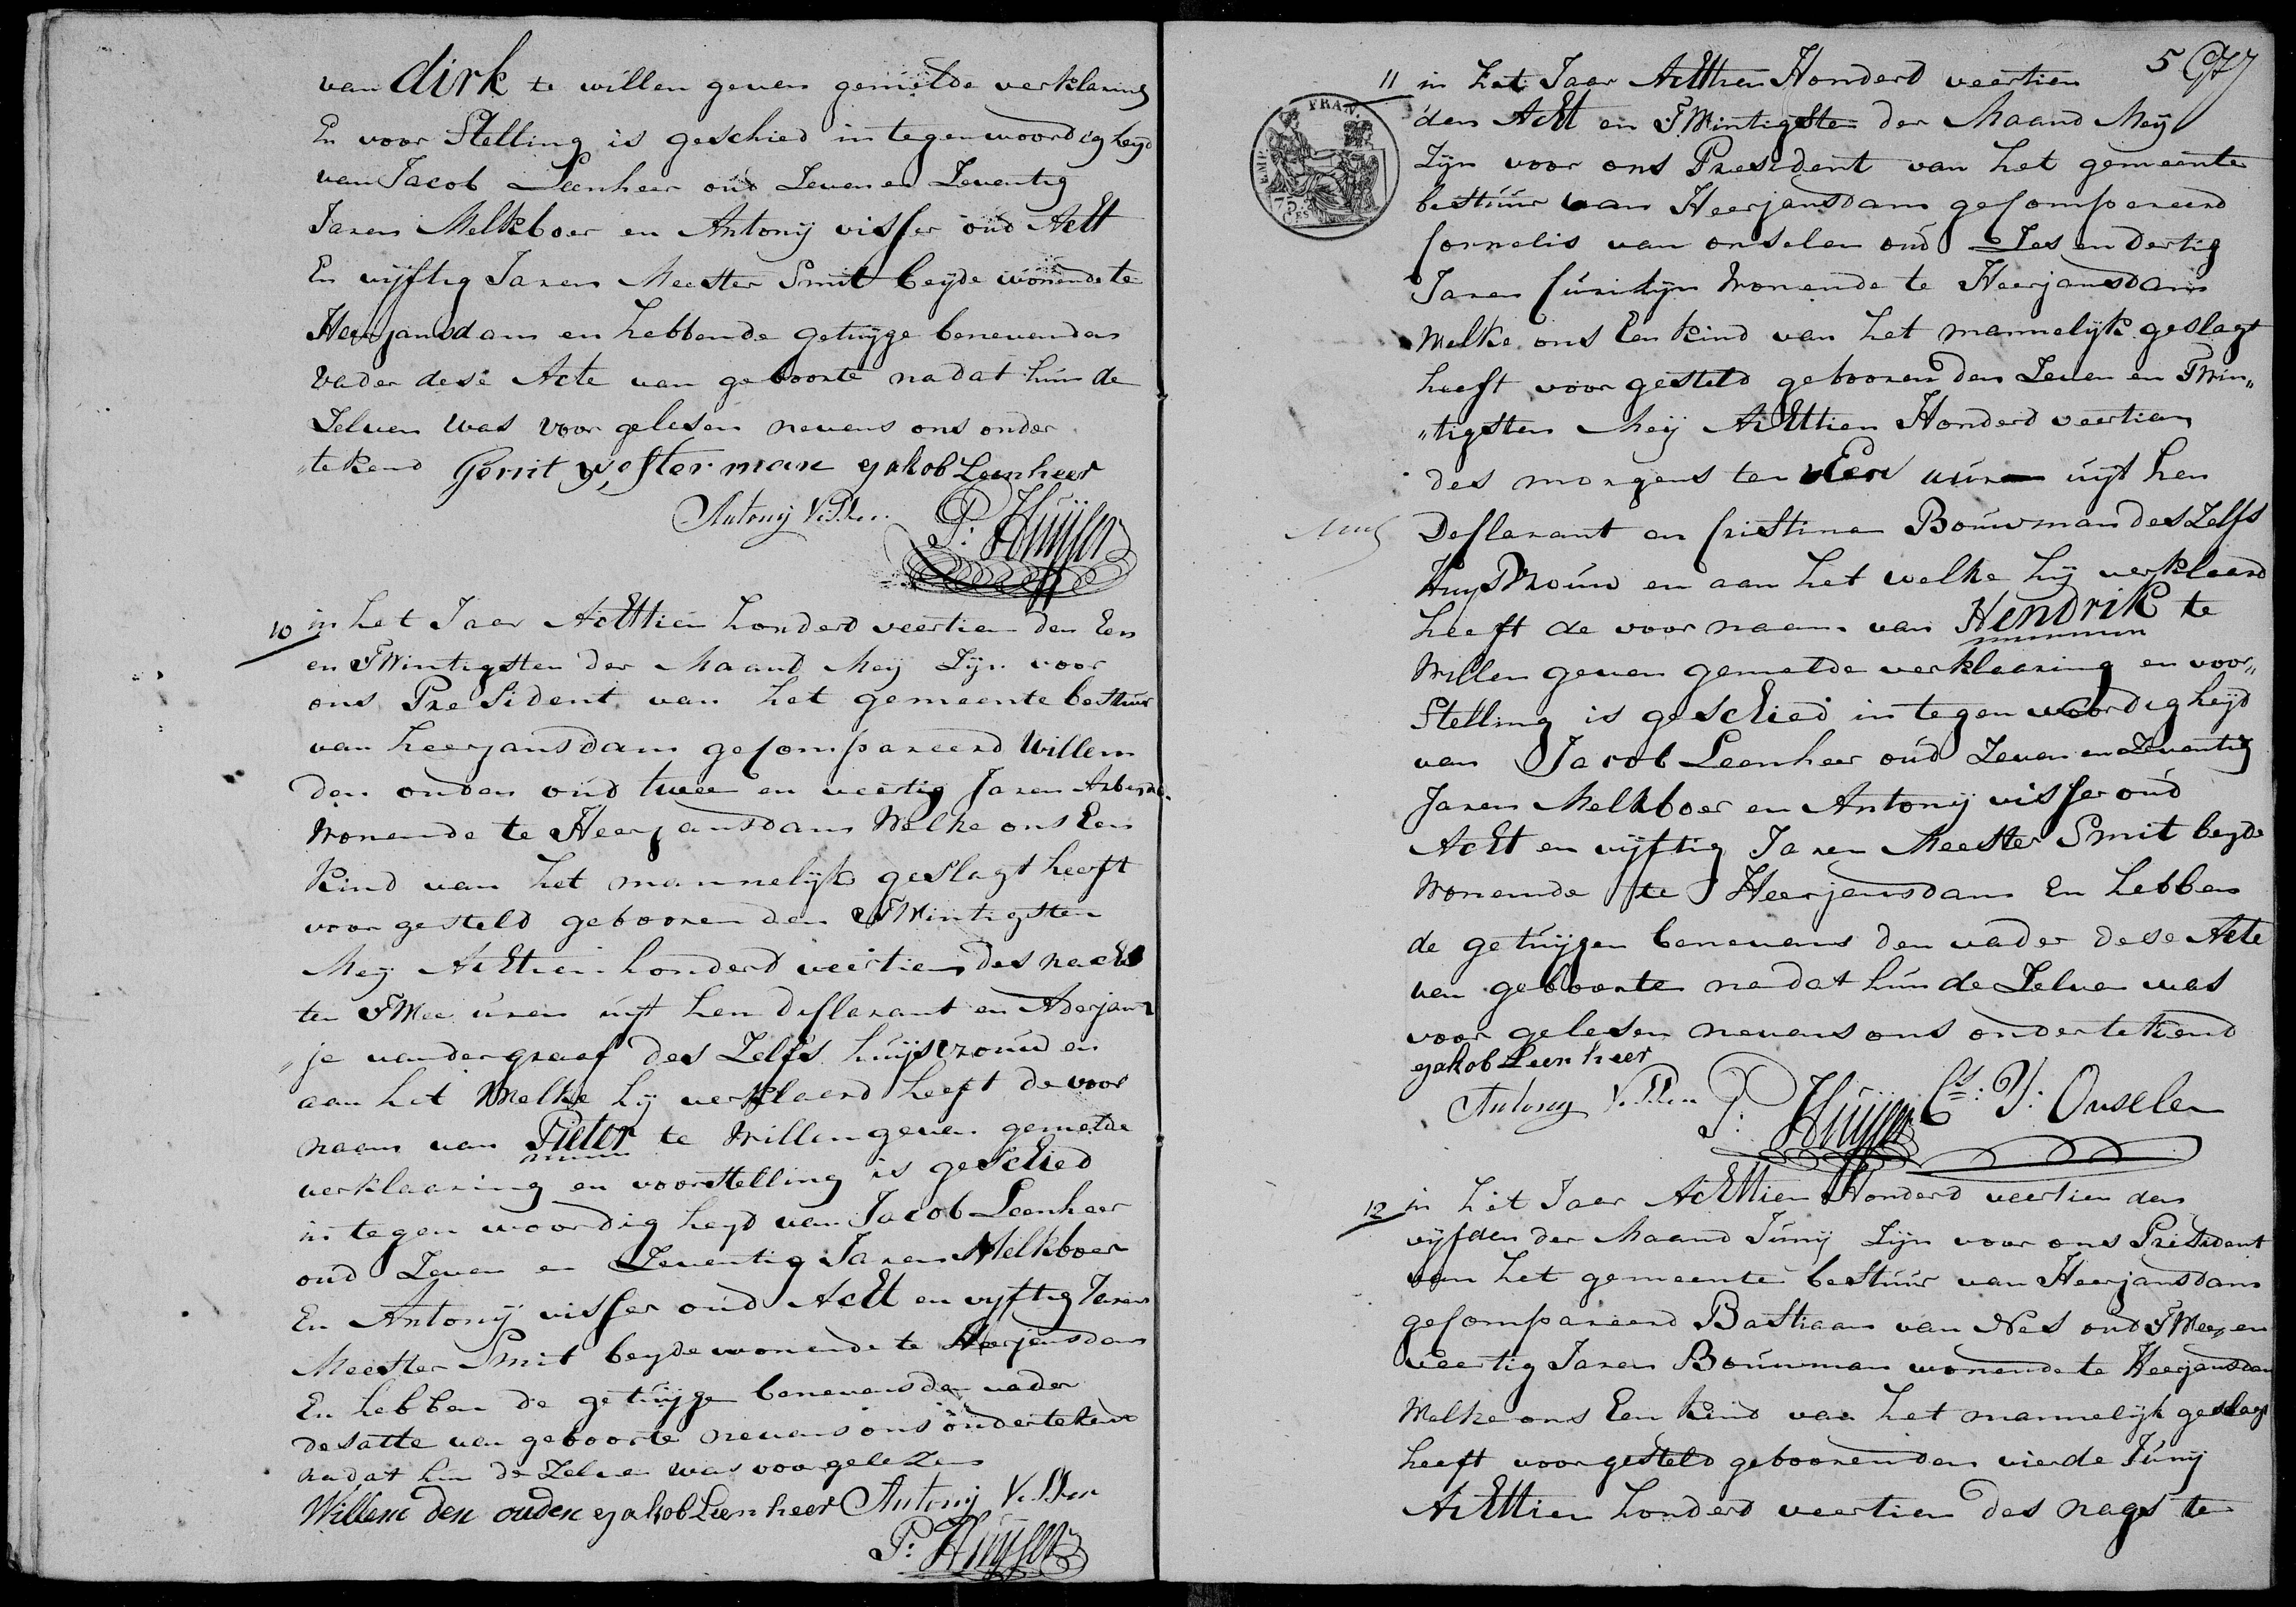 van dirk te willen geven gemelde verklaring
En voor Stelling is geschied in tegenwoordigheyd
van Jacob Leenheer oud Zeven en Zeventig
Jaren Melkboer en Antonij visser oud Acht
En vijftig Jaren Meester Smit beyde wonende te
Heerjansdam en hebbende getuyge benevenden
Vader dese Acte van geboorte nadat hun de
Zelven was voor gelesen nevens ons onder
tekend Gerrit westerman Jakob Leenheer
Antonij Visser P: Huijser
10 in het Jaar Achttien honderd veertien den Een
en Twintigsten der Maand Meij Zijn voor
ons President van het gemeente bestuur
van heerjansdam gecompareerd Willem
den ouden oud twee en veertig Jaren Arbeyder
Wonende te Heerjansdam Welke ons Een
Kind van het mannelijk geslagt heeft
voor gesteld gebooren den Twintigsten
Meij Achttien honderd veertien des nachts
ten Twee uren uyt hem Declarant en Aderjaan
"je vandergraaf des Zelfs huijsvrouw en
aan het Welke hij verklaard heeft de voor
naam van Pieter te Willen geven gemelde
verklaaring en voorstelling is geschied
in tegen woordig heyd van Jacob Leenheer
oud Zeven en Zeventig Jaren Melkboer
En Antonij visser oud Acht en vyftig Jaren
Meester Smit beyde wonende te Heerjansdam
En hebben de getuijge benevens den vader
dese atte van geboorte nevens ons ondertekend
nadat hun de Zelven was voorgelezen
Willem den ouden Jakob Leenheer Antonij Visser
P: Huijser
5
11 in het Jaar Achttien Honderd veertien
den Acht en Twintigsten der Maand Meij
Zijn voor ons President van het gemeente
bestuur van Heerjansdam gecompareerd
Cornelis van onselen oud Zes en dertig
Jaren Wonende te Heerjansdam
Welke ons Een kind van het mannelijk geslagt
heeft voor gesteld gebooren den Zeven en Twin"
"tigsten Meij Achttien Honderd veertien
des morgens ten Een uure uijt hem
Declarant en Cristina Bouwman des Zelfs
Huys Vrouw en aan het welke hij verklaard
heeft de voor naam van Hendrik te
Willen geven gemelde verklaaring en voor"
Stelling is geschied in tegen woordigheijd
van Jacob Leenheer oud Zeven en Zeventig
Jaren Melkboer en Antonij visser oud
Acht en vijftig Jaren Meester Smit beyde
Wonende te Heerjansdam En hebben
de getuijgen benevens den vader dese Acte
van geboorte nadat hun de Zelven was
voor gelesen nevens ons ondertekend
Jakob Leenheer
Antonij Visser P: Huijser Cs: V: Onselen
12 in het Jaar Achttien Honderd veertien den
vijfden der Maand Junij Zijn voor ons President
van het gemeente bestuur van Heerjansdam
gecompareerd Bastiaan van Nes oud Twee en
veertig Jaren Bouwman wonende te Heerjansdam
Welke ons Een kind van het mannelijk geslagt
heeft voorgesteld geboorenden vierde Junij
Achttien honderd veertien des nags te
FRAN.
75